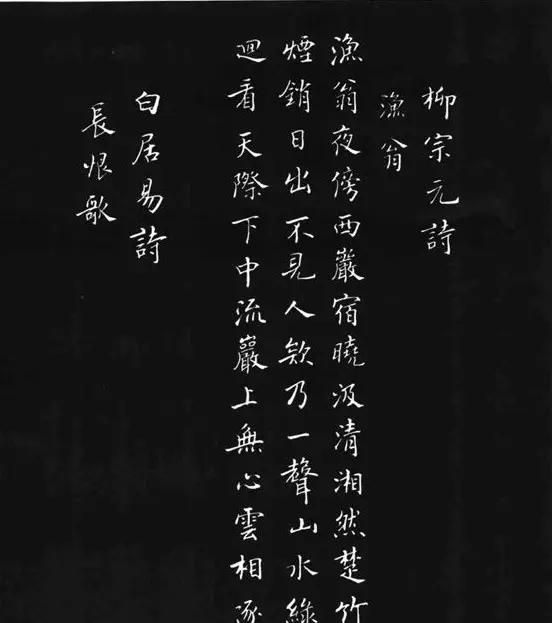 柳宗元詩
漁翁
漁翁夜傍西巖宿曉汲清湘然楚竹
煙銷日出不見人欸乃一聲山水綠
迴看天際下中流巖上無心雲相逐
白居易詩
長恨歌